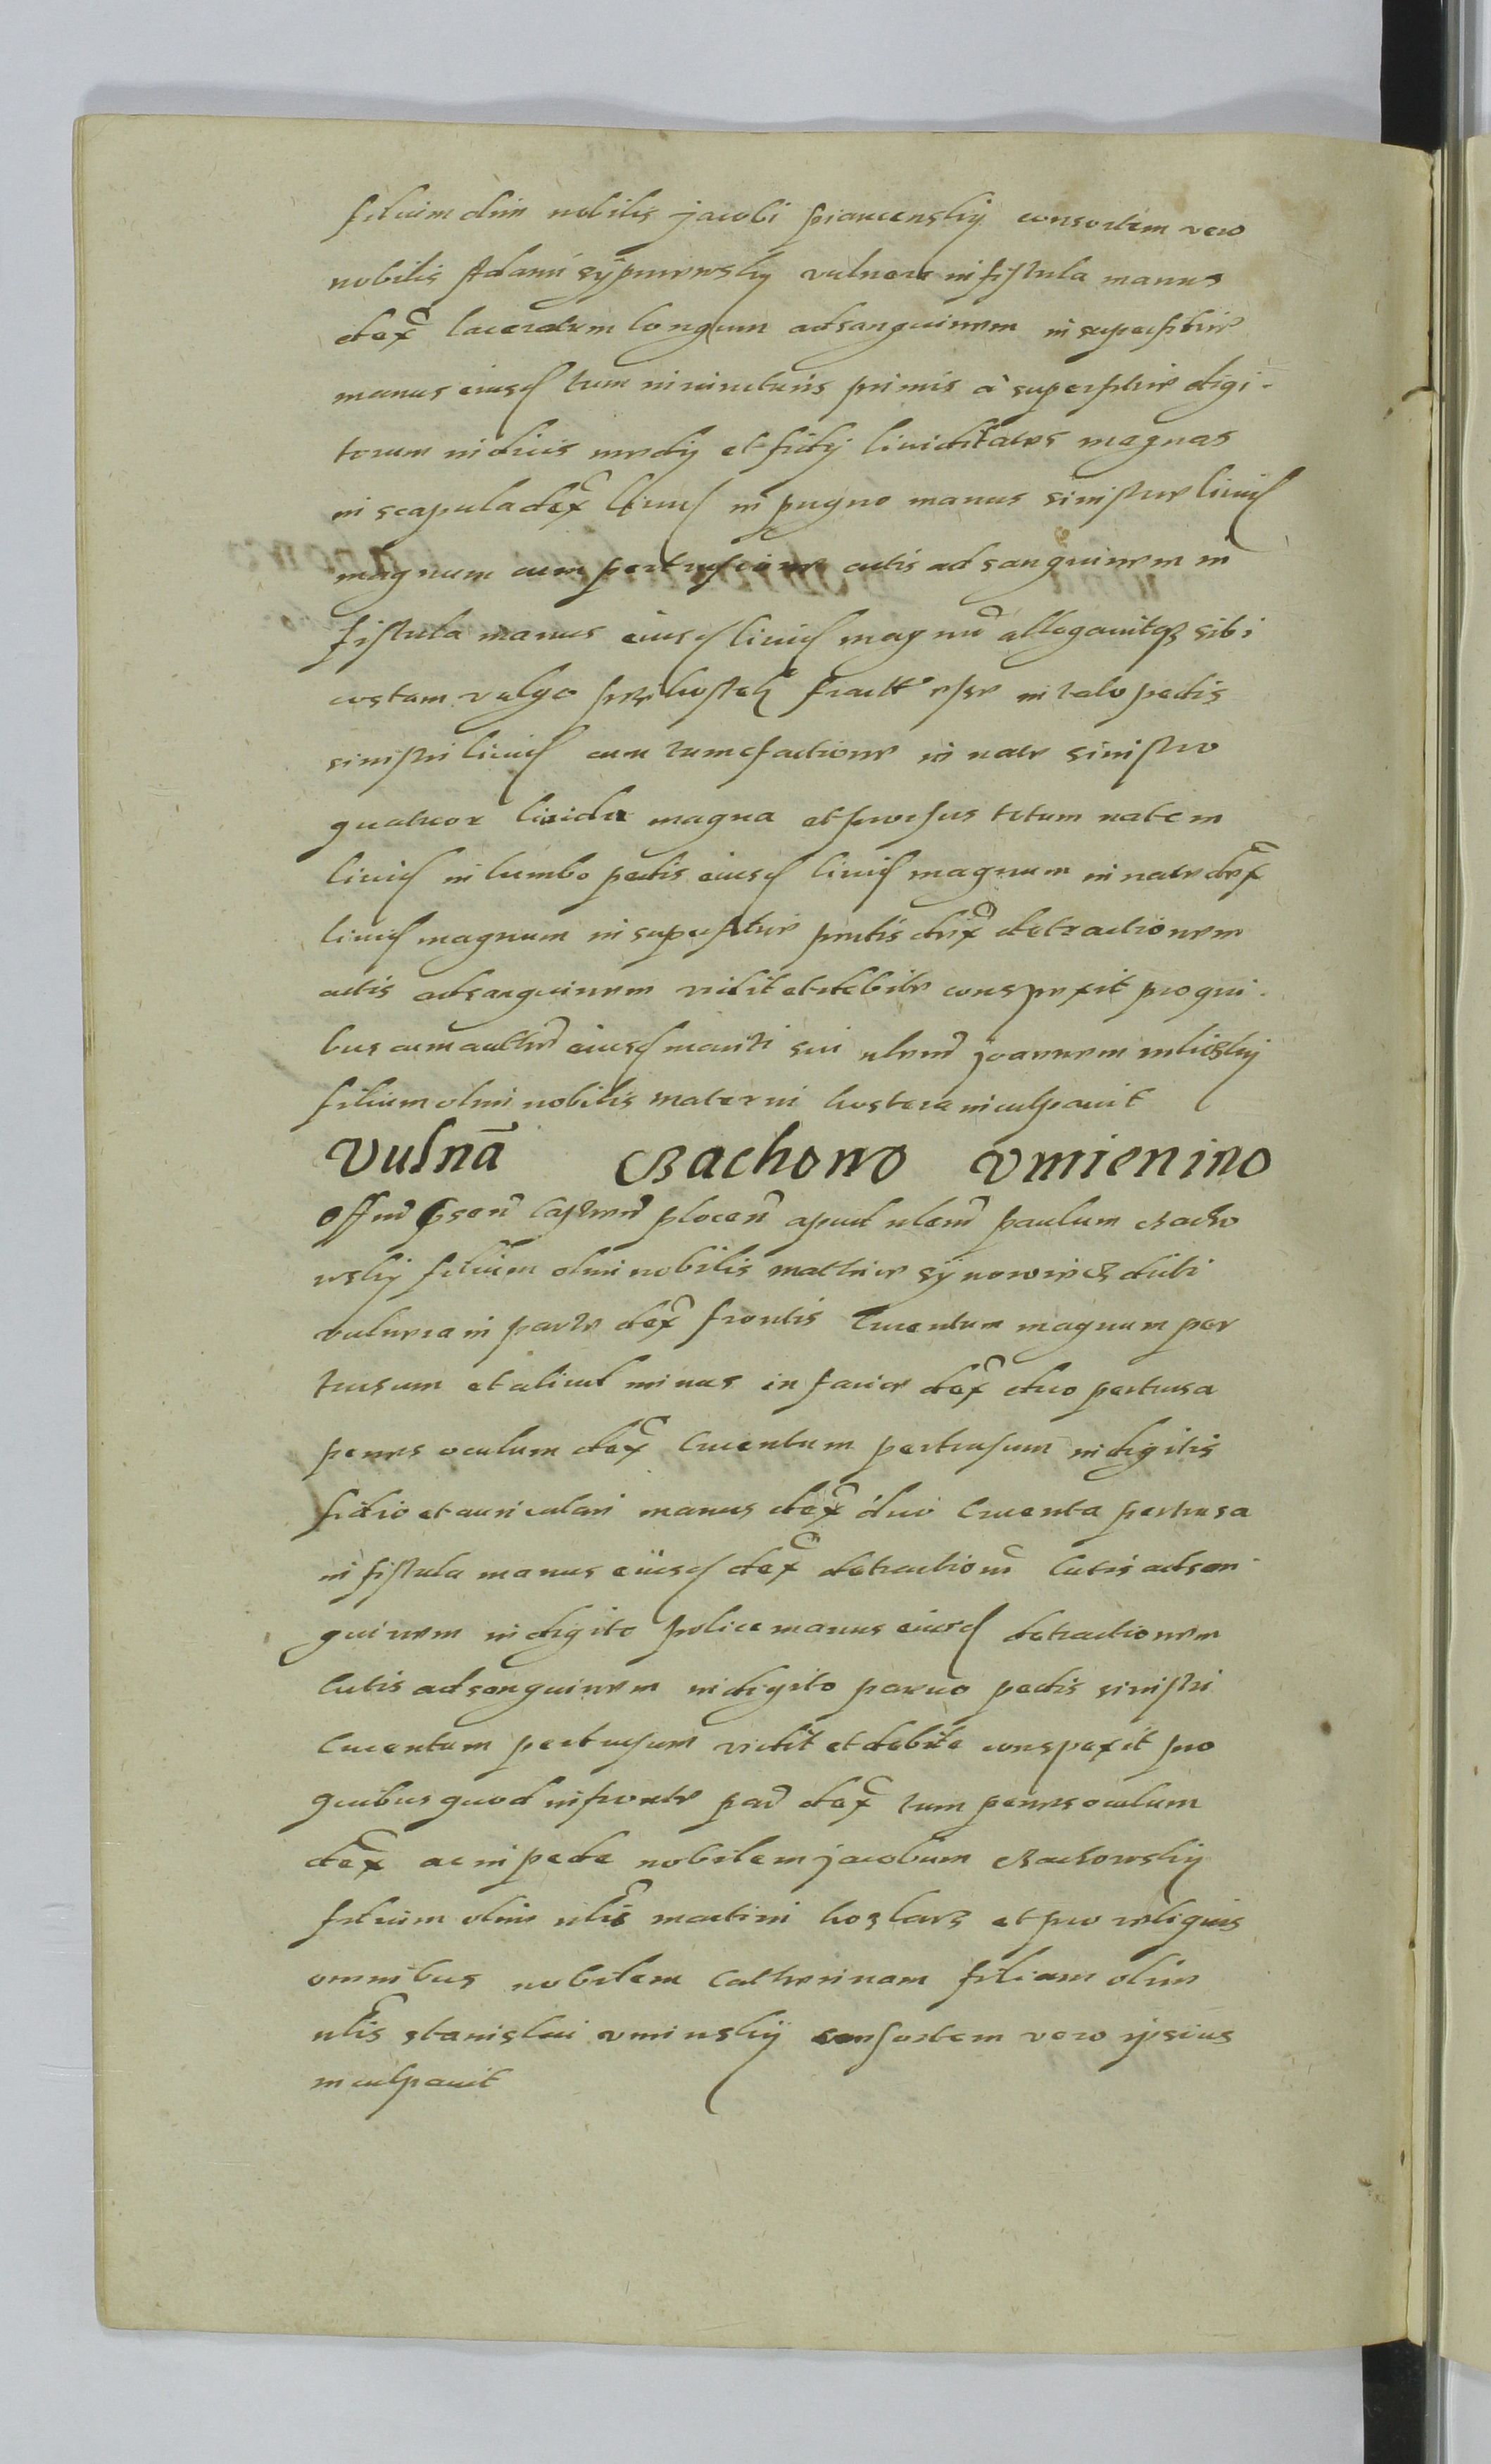 filiam olim nobilis jacobi consortem vero
nobilis Adami sÿpniewskij vulnera in fistula manus
dex laceratum longum ad sanguinem in superficie
manus eiusd tum in iuncturis primis à superficie digi-
torum indicis medij et fidij liuiditates magnas
in scapula dex liuid in pugno manus sinistre liuid
magnum cum pertusione cutis ad sanguinem in
fistula manus eiusd liuid magnu allegauitq sibi
costam vulgo fract esse in talo pedis
sinistri liuid cum tumefactione in nate sinistro
quatuor liuida magna et totum natem
liuid in lumbo pedis eiusd liuid magnum in nate dex
liuid magnum in superficie dex detractionem
cutis ad sanguinem vidit et debite conspexit pro qui-
bus eiusd mariti sui nlem joannem
filium olim nobilis materni kostera inculpauit
Vulna Bachorro Vmienino
Offm psen Castren plocen apud nlem paulum Bacho
wskij filium olim nobilis mathie
vulnera in parte dex frontis cruentum magnum per
tusum et aliud minus in facie dex duo pertusa
penes oculum dex cruentum pertusum in digitis
fidio et auriculari manus dex duo cruenta pertusa
in fistula manus eiusd dex detractionem Cutis ad san-
guinem in digito police manus eiusd detractionem
Cutis ad sanguinem in digito paruo pedis sinistri
Cruentum pertusum vidit et debite conspexit pro
quibus quod in fronte par dex tum penes oculum
dex ac in pede nobilem jacobum Bachowskij
filium olim nlis martini et pro reliquis
omnibus nobilem Catherinam filiam olim
nlis stanislai vminskij consortem vero ipsius
inculpauit